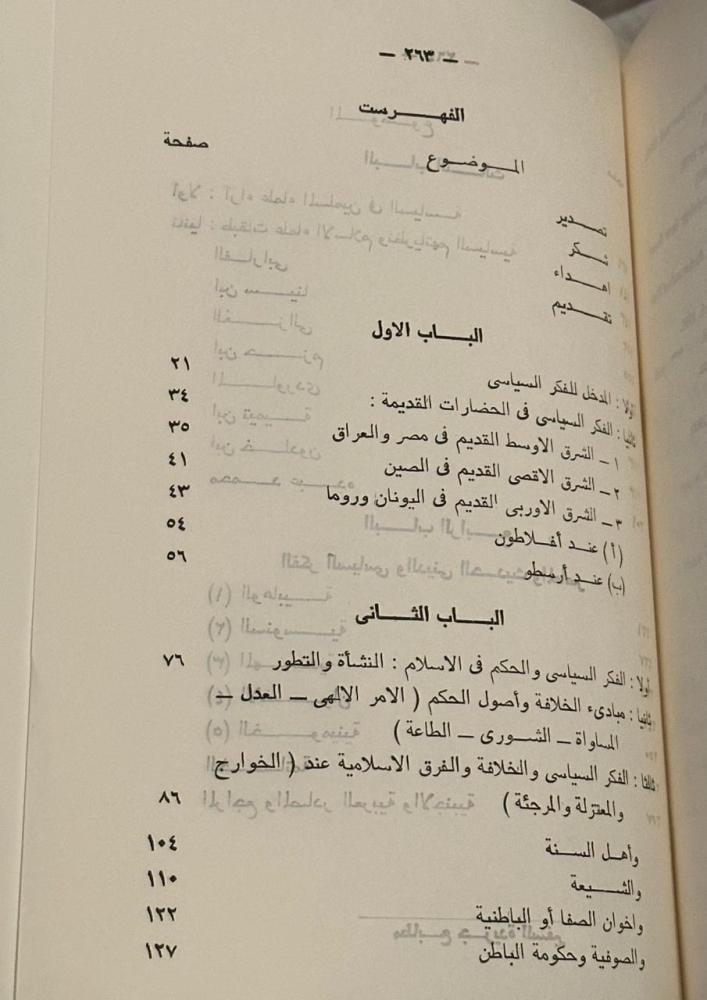 — ٢٦٣ —
الفهـــرست
الموضوع صفحة
تصدير
شكر
اهداء
تقديم
البـــاب الاول
أولا : المدخل للفكر السياسى ٢١
ثانيا : الفكر السياسى فى الحضارات القديمة : ٣٤
١ ــ الشرق الاوسط القديم فى مصر والعراق ٣٥
٢ ــ الشرق الاقصى القديم فى الصين ٤١
٣ ــ الشرق الاوربى القديم فى اليونان وروما ٤٣
( أ ) عند أفلاطون ٥٤
(ب) عند أرسطو ٥٦
البـــاب الثـــانى
أولا : الفكر السياسى والحكم فى الاسلام : النشأة والتطور ٧٦
ثانيا : مبادىء الخلافة وأصول الحكم ( الامر الالهى ــ العدل ــ
المساواة ــ الشورى ــ الطاعة )
ثالثا : الفكر السياسى والخلافة والفرق الاسلامية عند ( الخوارج
والمعتزلة والمرجئة ) ٨٦
وأهل السنة ١٠٤
والشيعة ١١٠
واخوان الصفا أو الباطنية ١٢٢
والصوفية وحكومة الباطن ١٢٧